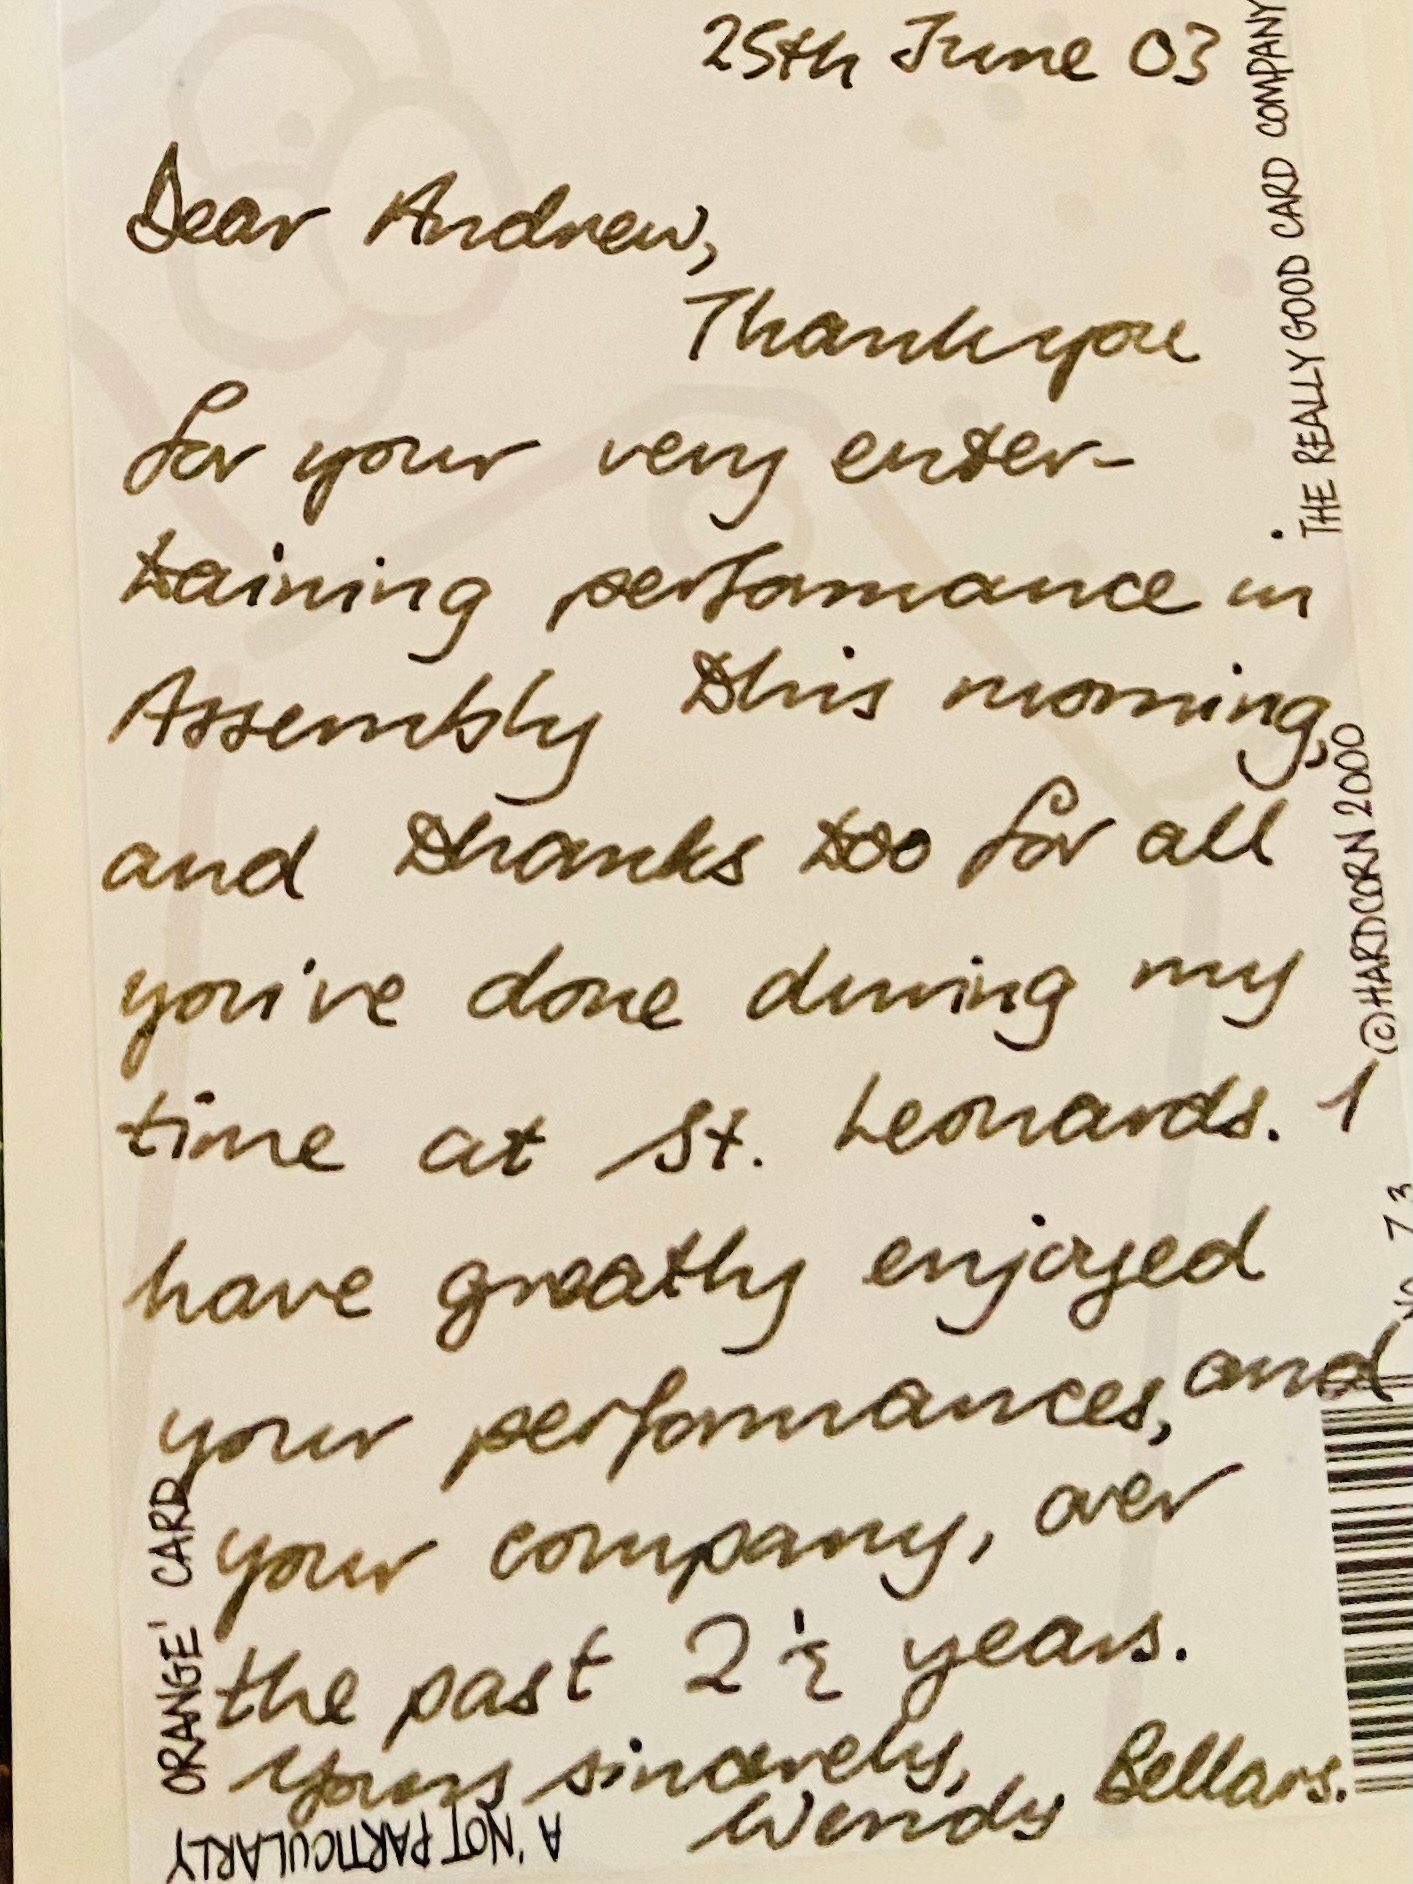 25th June 03
Dear Andrew,
Thankyou
for your very enter-
taining performance in
Assembly this morning,
and thanks too for all
you've done during my
time at St. Leonards. I
have greatly enjoyed
your performances, and
your company, over
the past 2½ years.
Yours sincerely,
Wendy Bellars.
THE REALLY GOOD CARD COMPANY
©HARDCORN 2000
NO 73
A 'NOT PARTICULARLY
ORANGE' CARD